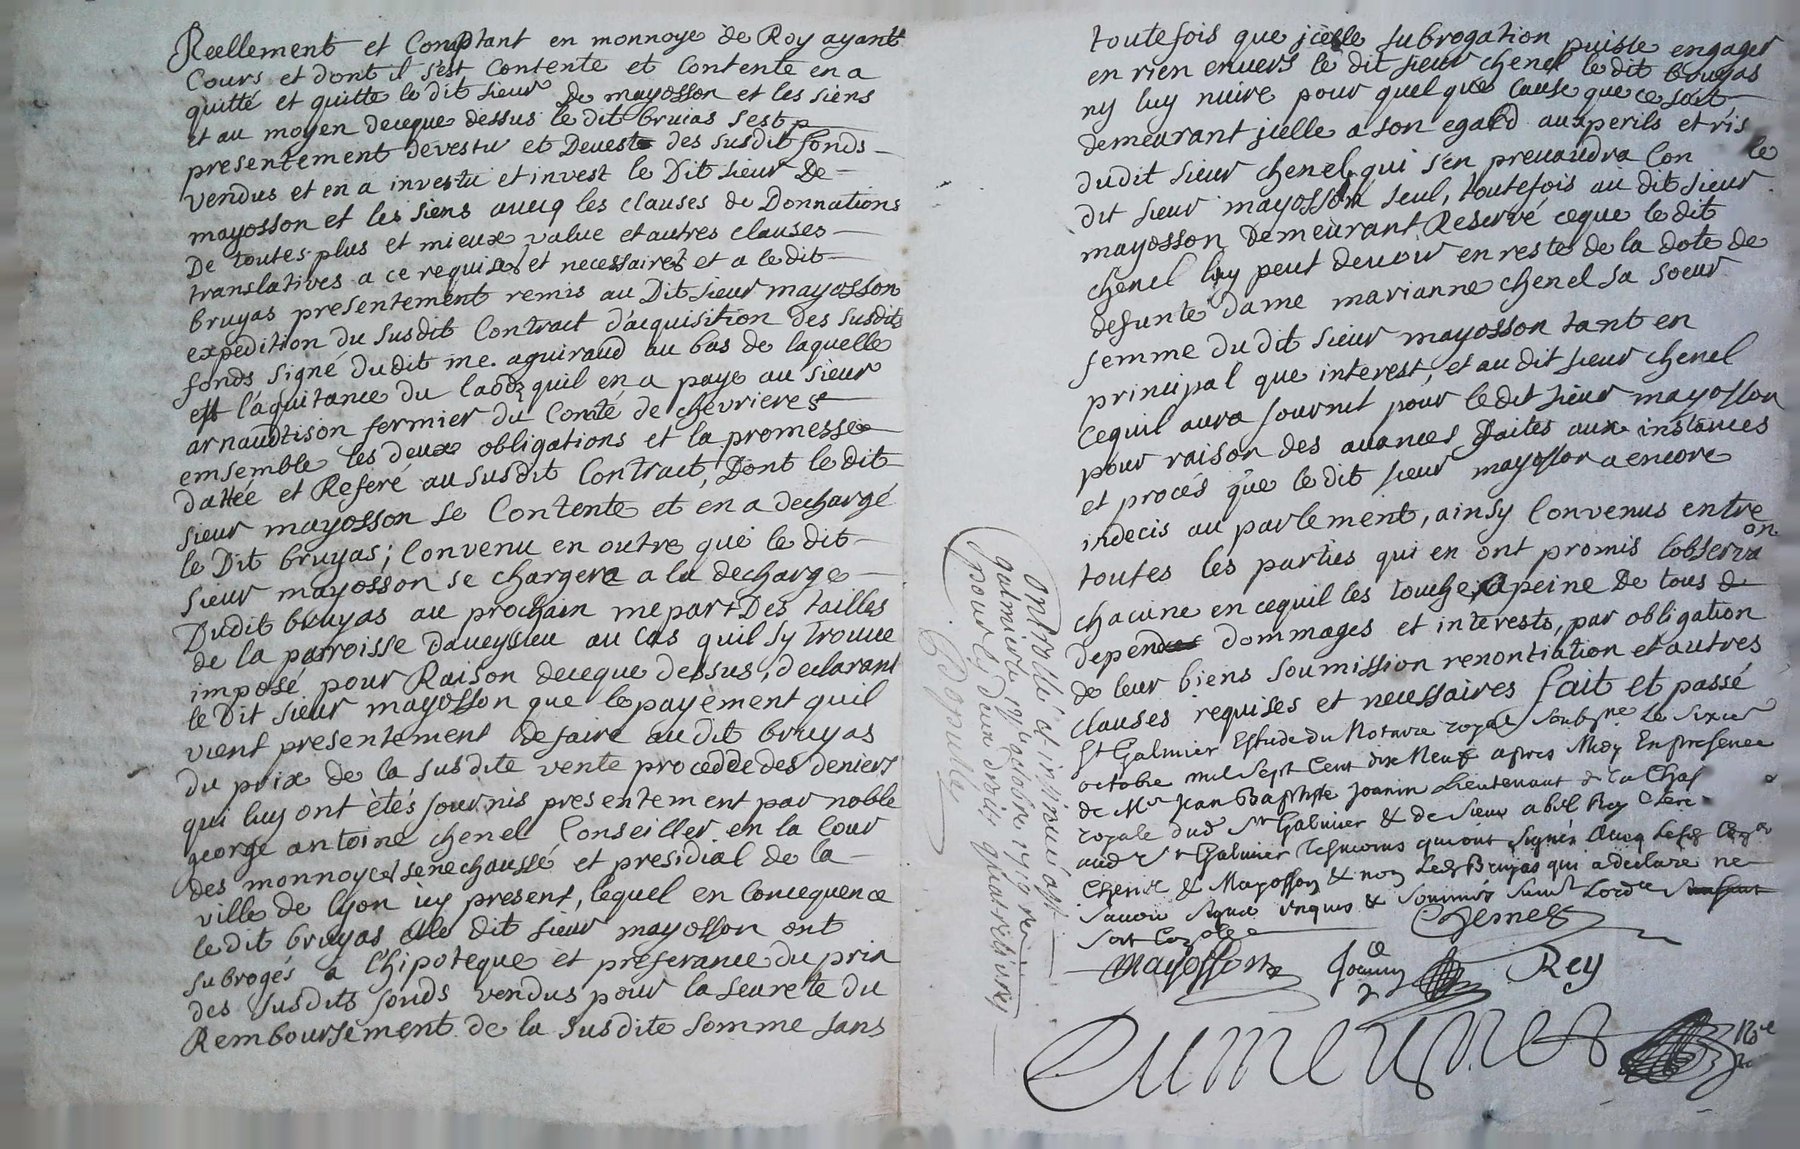 Reellement et Comptant en monnoye de Roy ayant
Cours et dont il s'est Contenté et Contente en a
quitté et quitte le dit sieur de mayosson et les siens
et au moyen deceque dessus le dit bruias sest p
presentement devestu et Devest des susdit fonds
vendus et en a investu et invest le Dit sieur De
mayosson et les siens avecq les clauses de Donnations
De toutes plus et mieux value et autres clauses
translatives a ce requises et necessaires et a le dit
bruyas presentement remis au Dit sieur mayosson
expedition du susdit Contract d'acquisition des susdits
fonds signé dudit me. aguiraud au bas de laquelle
est l'aquitance du laods quil en a paye au sieur
arnaudtison fermier du Comté de chevrieres
ensemble les deux obligations et la promesse
dattée et Referé au susdit Contract, Dont le dit
sieur mayosson se Contente et en a dechargé
le Dit bruyas; Convenu en outre que le dit
sieur mayosson se chargera a la decharge
Dudit bruyas au prochain mepart Des tailles
de la parroisse daveysieu au cas quil sy trouve
imposé pour Raison deceque dessus, declarant
le Dit sieur mayosson que le payement quil
vient presentement de faire au dit bruyas
du prix de la susdite vente procedde des deniers
qui luy ont étés fournis presentement par noble
george antoine chenel Conseiller en la Cour
des monnoyes senechaussé et presidial de la
ville de lyon icy present, lequel en Concequence
le dit bruyas et le dit sieur mayosson ont
subrogés a l'hipoteque et preferance du prix
des susdits fonds vendus pour la seureté du
Remboursement de la susdite somme sans
toutefois que jcelle subrogation puisse engager
en rien envers le dit sieur chenel le dit bruyas
ny luy nuire pour quel que cause que ce soit
demeurant jcelle a son egard aux perils et ris
dudit sieur chenel qui s'en prevaudra Con le
dit sieur mayosson seul, toutefois au dit sieur
mayosson Demeurant Reservé ceque le dit
chenel luy peut devoir en reste de la dote de
defunte dame marianne chenel sa soeur
femme du dit sieur mayosson tant en
principal que interest, et au dit sieur chenel
cequil aura fournit pour le dit sieur mayosson
pour raison des avances faites aux instances
et procés que le dit sieur mayosson a encore
indecis au parlement, ainsy Convenus entre
toutes les parties qui en ont promis lobserva on
chacune en cequil les touche, a peine De tous
depen dommages et interests, par obligation
de leur biens soumission renontiation et autres
clauses requises et necessaires fait et passé
St Galmier Estude du Notaire royal soubsne le sixie
octobre mil sept Cent dix Neuf apres Midy En presence
de Mr Jean Baptiste Joanin Lieutenant de la Chas
royale dud St Galmier & de Sieur abel Rey Clerc
aud St Galmier tesmoins qui ont signés avecq lesd
Chenel & Mayosson & non led Bruyas qui a declare ne
scavoir signer enquis & sommés
Chenel
mayosson
Joanin
Rey
Controllé et insinué a St
galmier le 19e octobre 1719 re
pour les deux droits